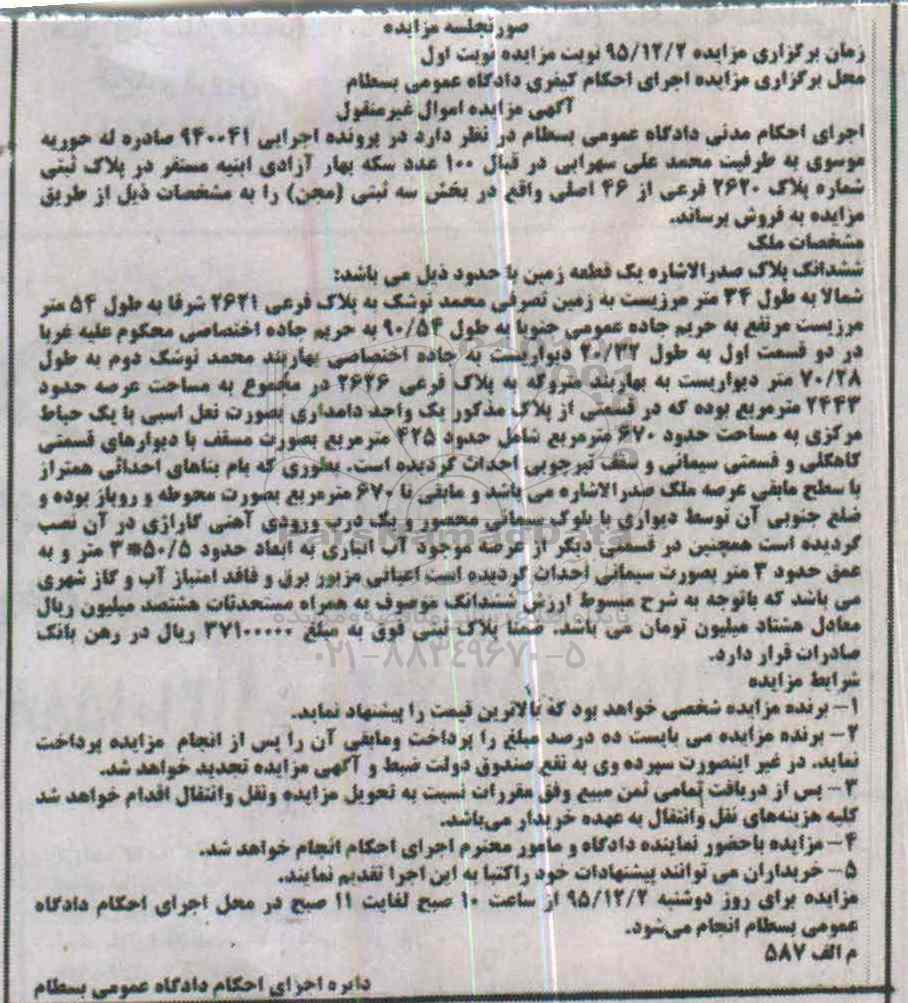 صورتجلسه مزایده
زمان برگزاری مزایده ۹۵/۱۲/۲ نوبت مزایده نوبت اول
محل برگزاری مزایده اجرای احکام کیفری دادگاه عمومی بسطام
آگهی مزایده اموال غیرمنقول
اجرای احکام مدنی دادگاه عمومی بسطام در نظر دارد در پرونده اجرایی ۹۴۰۰۴۱ صادره له حوریه
موسوی به طرفیت محمد علی سهرابی در قبال ۱۰۰ عدد سکه بهار آزادی ابنیه مستقر در پلاک ثبتی
شماره پلاک ۲۶۲۰ فرعی از ۴۶ اصلی واقع در بخش سه ثبتی (مجن) را به مشخصات ذیل از طریق
مزایده به فروش برساند.
مشخصات ملک
ششدانگ پلاک صدرالاشاره یک قطعه زمین با حدود ذیل می باشد:
شمالا به طول ۳۴ متر مرزیست به زمین تصرفی محمد نوشک به پلاک فرعی ۲۶۲۱ شرقا به طول ۵۴ متر
مرزیست مرتفع به حریم جاده عمومی جنوبا به طول ۹۰/۵۴ به حریم جاده اختصاصی محکوم علیه غربا
در دو قسمت اول به طول ۲۰/۲۲ دیواریست به جاده اختصاصی بهاربند محمد نوشک دوم به طول
۷۰/۲۸ متر دیواریست به بهاربند متروکه به پلاک فرعی ۲۶۲۶ در مجموع به مساحت عرصه حدود
۲۴۴۳ مترمربع بوده که در قسمتی از پلاک مذکور یک واحد دامداری بصورت نعل اسبی با یک حیاط
مرکزی به مساحت حدود ۶۷۰ مترمربع شامل حدود ۴۲۵ مترمربع بصورت مسقف با دیوارهای قسمتی
کاهگلی و قسمتی سیمانی و سقف تیرچوبی احداث گردیده است. بطوری که بام بناهای احداثی همتراز
با سطح مابقی عرصه ملک صدرالاشاره می باشد و مابقی تا ۶۷۰ مترمربع بصورت محوطه و روباز بوده و
ضلع جنوبی آن توسط دیواری با بلوک سیمانی محصور و یک درب ورودی آهنی گاراژی در آن نصب
گردیده است همچنین در قسمتی دیگر از عرصه موجود آب انباری به ابعاد حدود ۵۰/۵*۳ متر و به
عمق حدود ۳ متر بصورت سیمانی احداث گردیده است اعیانی مزبور برق و فاقد امتیاز آب و گاز شهری
می باشد که باتوجه به شرح مبسوط ارزش ششدانگ موصوف به همراه مستحدثات هشتصد میلیون ریال
معادل هشتاد میلیون تومان می باشد. ضمنا پلاک ثبتی فوق به مبلغ ۳۷۱۰۰۰۰۰ ریال در رهن بانک
صادرات قرار دارد.
شرایط مزایده
۱- برنده مزایده شخصی خواهد بود که بالاترین قیمت را پیشنهاد نماید.
۲- برنده مزایده می بایست ده درصد مبلغ را پرداخت ومابقی آن را پس از انجام مزایده پرداخت
نماید. در غیر اینصورت سپرده وی به نفع صندوق دولت ضبط و آگهی مزایده تجدید خواهد شد.
۳- پس از دریافت تمامی ثمن مبیع وفق مقررات نسبت به تحویل مزایده ونقل وانتقال اقدام خواهد شد
کلیه هزینه‌های نقل وانتقال به عهده خریدار می‌باشد.
۴- مزایده باحضور نماینده دادگاه و مامور محترم اجرای احکام انجام خواهد شد.
۵- خریداران می توانند پیشنهادات خود راکتبا به این اجرا تقدیم نمایند.
مزایده برای روز دوشنبه ۹۵/۱۲/۲ از ساعت ۱۰ صبح لغایت ۱۱ صبح در محل اجرای احکام دادگاه
عمومی بسطام انجام می‌شود.
م الف ۵۸۷
دایره اجرای احکام دادگاه عمومی بسطام
ParsNamadData
۰۲۱-۸۸۳۴۹۶۷۰-۵